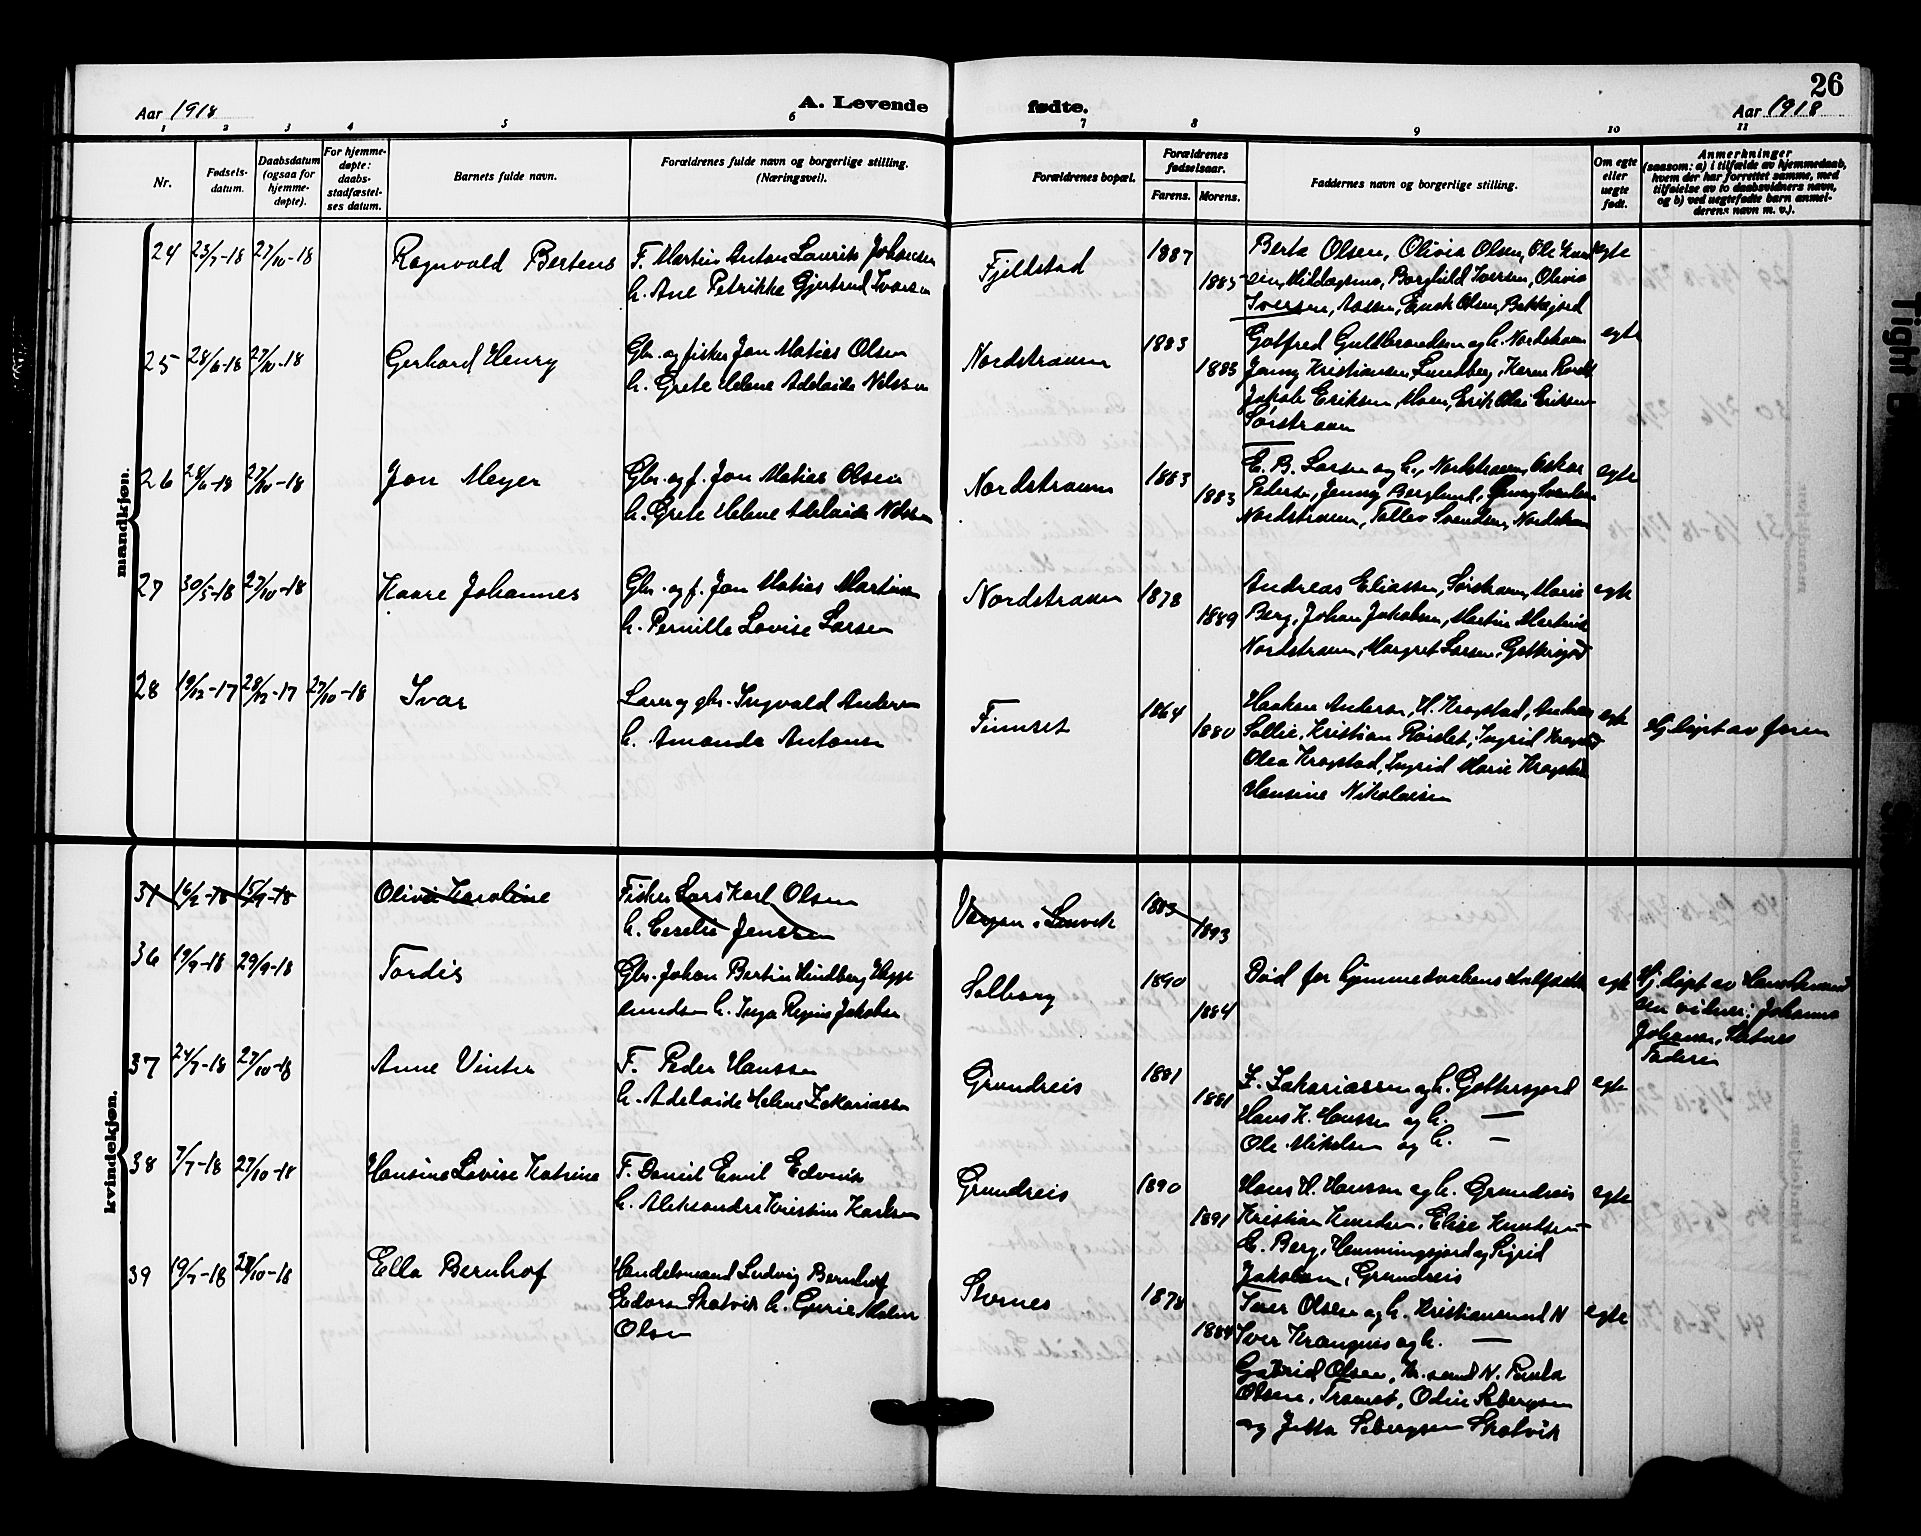 26
Aar 1918
A. Levende fødte.
Aar 1918
1 2 3 4 5 6 7 8 9 10 11
Nr.
Fødsels-
datum.
Daabsdatum
(ogsaa for
hjemme-
døpte).
For hjemme-
døpte:
daabs-
stadfæstel-
ses datum.
Barnets fulde navn.
Forældrenes fulde navn og borgerlige stilling.
(Næringsvei).
Forældrenes bopæl.
Forældrenes
fødselsaar.
Farens. Morens.
Faddernes navn og borgerlige stilling.
Om egte
eller
uegte
født.
Anmerkninger
(saasom: a) i tilfælde av hjemmedaab,
hvem der har forrettet samme, med
tilføielse av to daabsvidners navn,
og b) ved uegtefødte barn anmel-
derens navn m. v.).
mandkjøn.
24 23/7-18 27/10-18 Ragnvald Bertens
F. Martin Anton Laurits Johansen
h. Ane Petrikke Gjertrud Ivarsen
Fjeldstad 1887 1885
Berta Olsen, Olivia Olsen, Ole
Borghild Iversen, Olivia
Iversen, Enok Olsen,
egte
25 28/6-18 27/10-18 Gerhard Henry
Gbr. og fisker Jon Matias Olsen
h. Grete Helene Adelaide Nilssen
Nordstraumen 1883 1883
Gotfred Guldbrandsen og h. Nordstraum
Jenny Kristiansen, Lundberg, Karen
Jakob Eriksen, Moen, Erik Olai Eriksen
Sørstraum
egte
26 28/6-18 27/10-18 Jon Meyer
Gbr. og f. Jon Matias Olsen
h. Grete Helene Adelaide Nilssen
Nordstraumen 1883 1883
E. B. Larsen og h., Nordstraumen, Oskar
Pedersen, Jenny Berglund,
Nordstraumen, Tollev Svendsen, Nordstraum
egte
27 30/5-18 27/10-18 Kaare Johannes
Gbr. og f. Jon Matias Martinsen
h. Pernille Lovise Larsen
Nordstraumen 1878 1889
Andreas Eliassen, Sørstraum, Marie
Berg, Johan Jakobsen, Martin
Nordstraumen, Margret Larsen,
egte
28 19/12-17 28/12-17 27/10-18 Ivar
Lærer og gbr. Ingvald Andersen
h. Amanda Antonsen
Finnset 1864 1880
Haakon Andersen, H. Kragstad,
Sollie, Kristian Røislet, Ingrid Kragstad
Olea Kragstad, Ingrid Marie Kragstad
Hansine Nikolaisen
egte
Hj. døpt av faren
kvindekjøn.
31 16/2-18 15/9-18 Olivie Karoline
Fisker Lars Karl Olsen
h. Cecelie Jenssen
1883 1893
36 19/9-18 29/9-18 Tordis
Gbr. Johan Bertin Hindberg
h. Inga Regine Jakobsen
Solborg 1890 1884
Død før hjemmedaabens
egte
Hj. døpt av
vidner: Johannes
Johansen,
37 24/7-18 27/10-18 Anne Vinter
F. Peder Hanssen
h. Adelaide Helene Zakariassen
Grundreis 1881 1881
Z. Zakariassen og h.
Hans K. Hanssen og h. —
Ole Mikelsen og h. —
egte
38 7/7-18 27/10-18 Hansine Lovise Katrine
F. Daniel Emil Edvinsen
h. Aleksandra Kristine Karlsen
Grundreis 1890 1891
Hans H. Hanssen og h. Grundreis
Kristian Knudsen, Elise Knudsen
E. Berg, Hemmingsfjord og Sigrid
Jakobsen, Grundreis
egte
39 19/7-18 27/10-18 Ella Bernhof
Handelsmand Ludvig Bernhof
Skatvik h. Gurie Malene
Olsen
Stornes 1878 1884
Iver Olsen og h. Kristiansund N
Iver Krangnes og h. —
Gabriel Olsen, Kr.sund N. Paula
Olsen, Tromsø, Odin Sebergsen
og Jetta Sebergsen Skatvik
egte